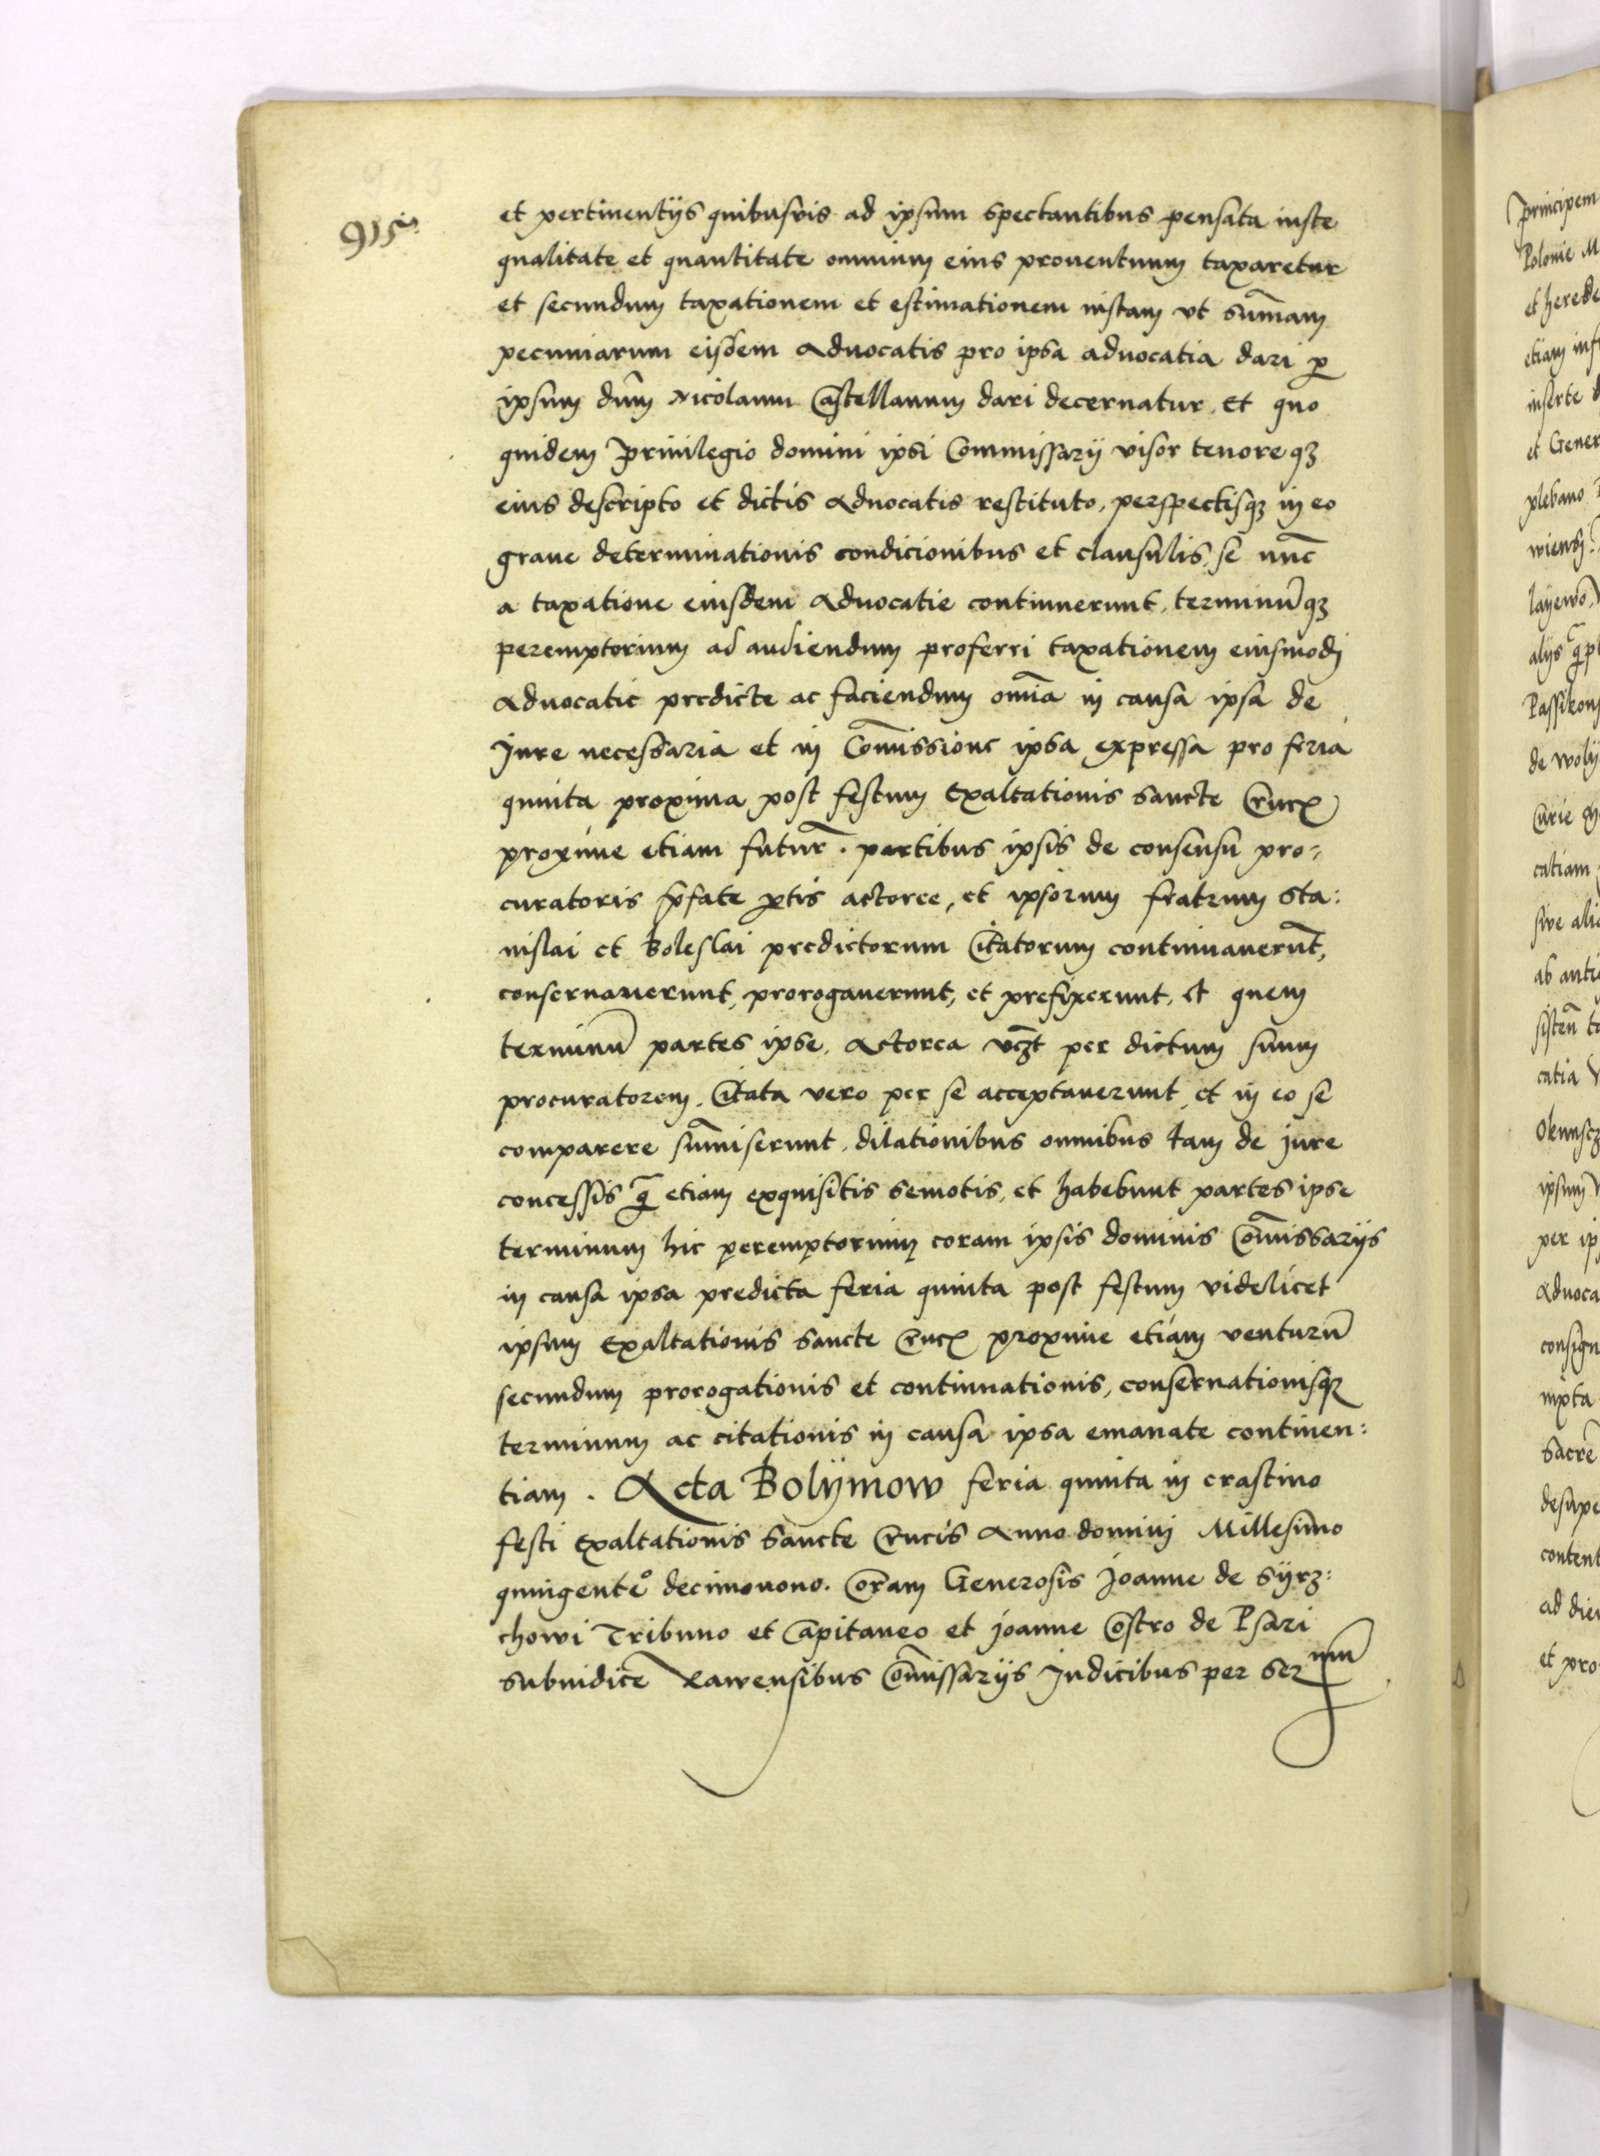 913
915
et pertinentijs quibusuis ad ipsum spectantibus pensata iuste
qualitate et quantitate omnium eius prouentuum taxaretur
et secundum taxationem et estimationem iustam vt sum̄am
pecuniarum eisdem Aduocatis pro ipsa aduocatia dari ꝑ
ipsum dn̄m Nicolaum Castellanum dari decernatur. Et quo
quidem Priuilegio domini ipsi Commissarij visor tenoreqꝫ
eius descripto et dictis Aduocatis restituto, perspectisqꝫ in eo
graue determinationis condicionibus et clausulis, se nūc
a taxatione eiusdem Aduocatie continuerunt, terminūqꝫ
peremptorium ad audiendum proferri taxationem eiusmodi
Aduocatie predicte ac faciendum om̄ia in causa ipsa de
Jure necessaria et in Com̄issione ipsa expressa pro feria
quinta proxima post festum Exaltationis Sancte Cruc
proxime etiam futur̄. partibus ipsis de consensu pro-
curatoris p̄fate ꝑtis actoree, et ipsorum fratrum Sta:
nislai et Boleslai predictorum Citatorum continuauerūt,
conseruauerunt, prorogauerunt, et prefixerunt, Et quem
terminū partes ipse, Actorea vꝫt per dictum suum
procuratorem, Citata vero per se acceptauerunt, et in eo se
comparere sum̄iserunt, dilationibus omnibus tam de jure
concessis q̄ etiam exquisitis semotis, et habebunt partes ipse
terminum hic peremptorium coram ipsis dominis Com̄issarijs
in causa ipsa predicta feria quinta post festum videlicet
ipsum Exaltationis Sancte Cruc proxime etiam venturū
secundum prorogationis et continuationis, conseruationisqꝫ
terminum ac citationis in causa ipsa emanate continen:
tiam. Acta Bolÿmow feria quinta in crastino
festi Exaltationis Sancte Crucis Anno domini Millesimo
quingenteº decimonono. Coram Generosis Joanne de Syrz:
chowi Tribuno et Capitaneo et Joanne Costro de Psari
Subiudice Rawensibus Com̄issarijs Judicibus per Ser nūm
Principem
Polonie M
et herede
etiam inf
inserte
et Gener
plebano
wiensi
layewo,
alijs
de woly
Curie
catiam
siue alic
ab anti
catia
ipsum
per ip
Aduoca
consign
iuxta
Sacre
desupe
content
ad die
et pro